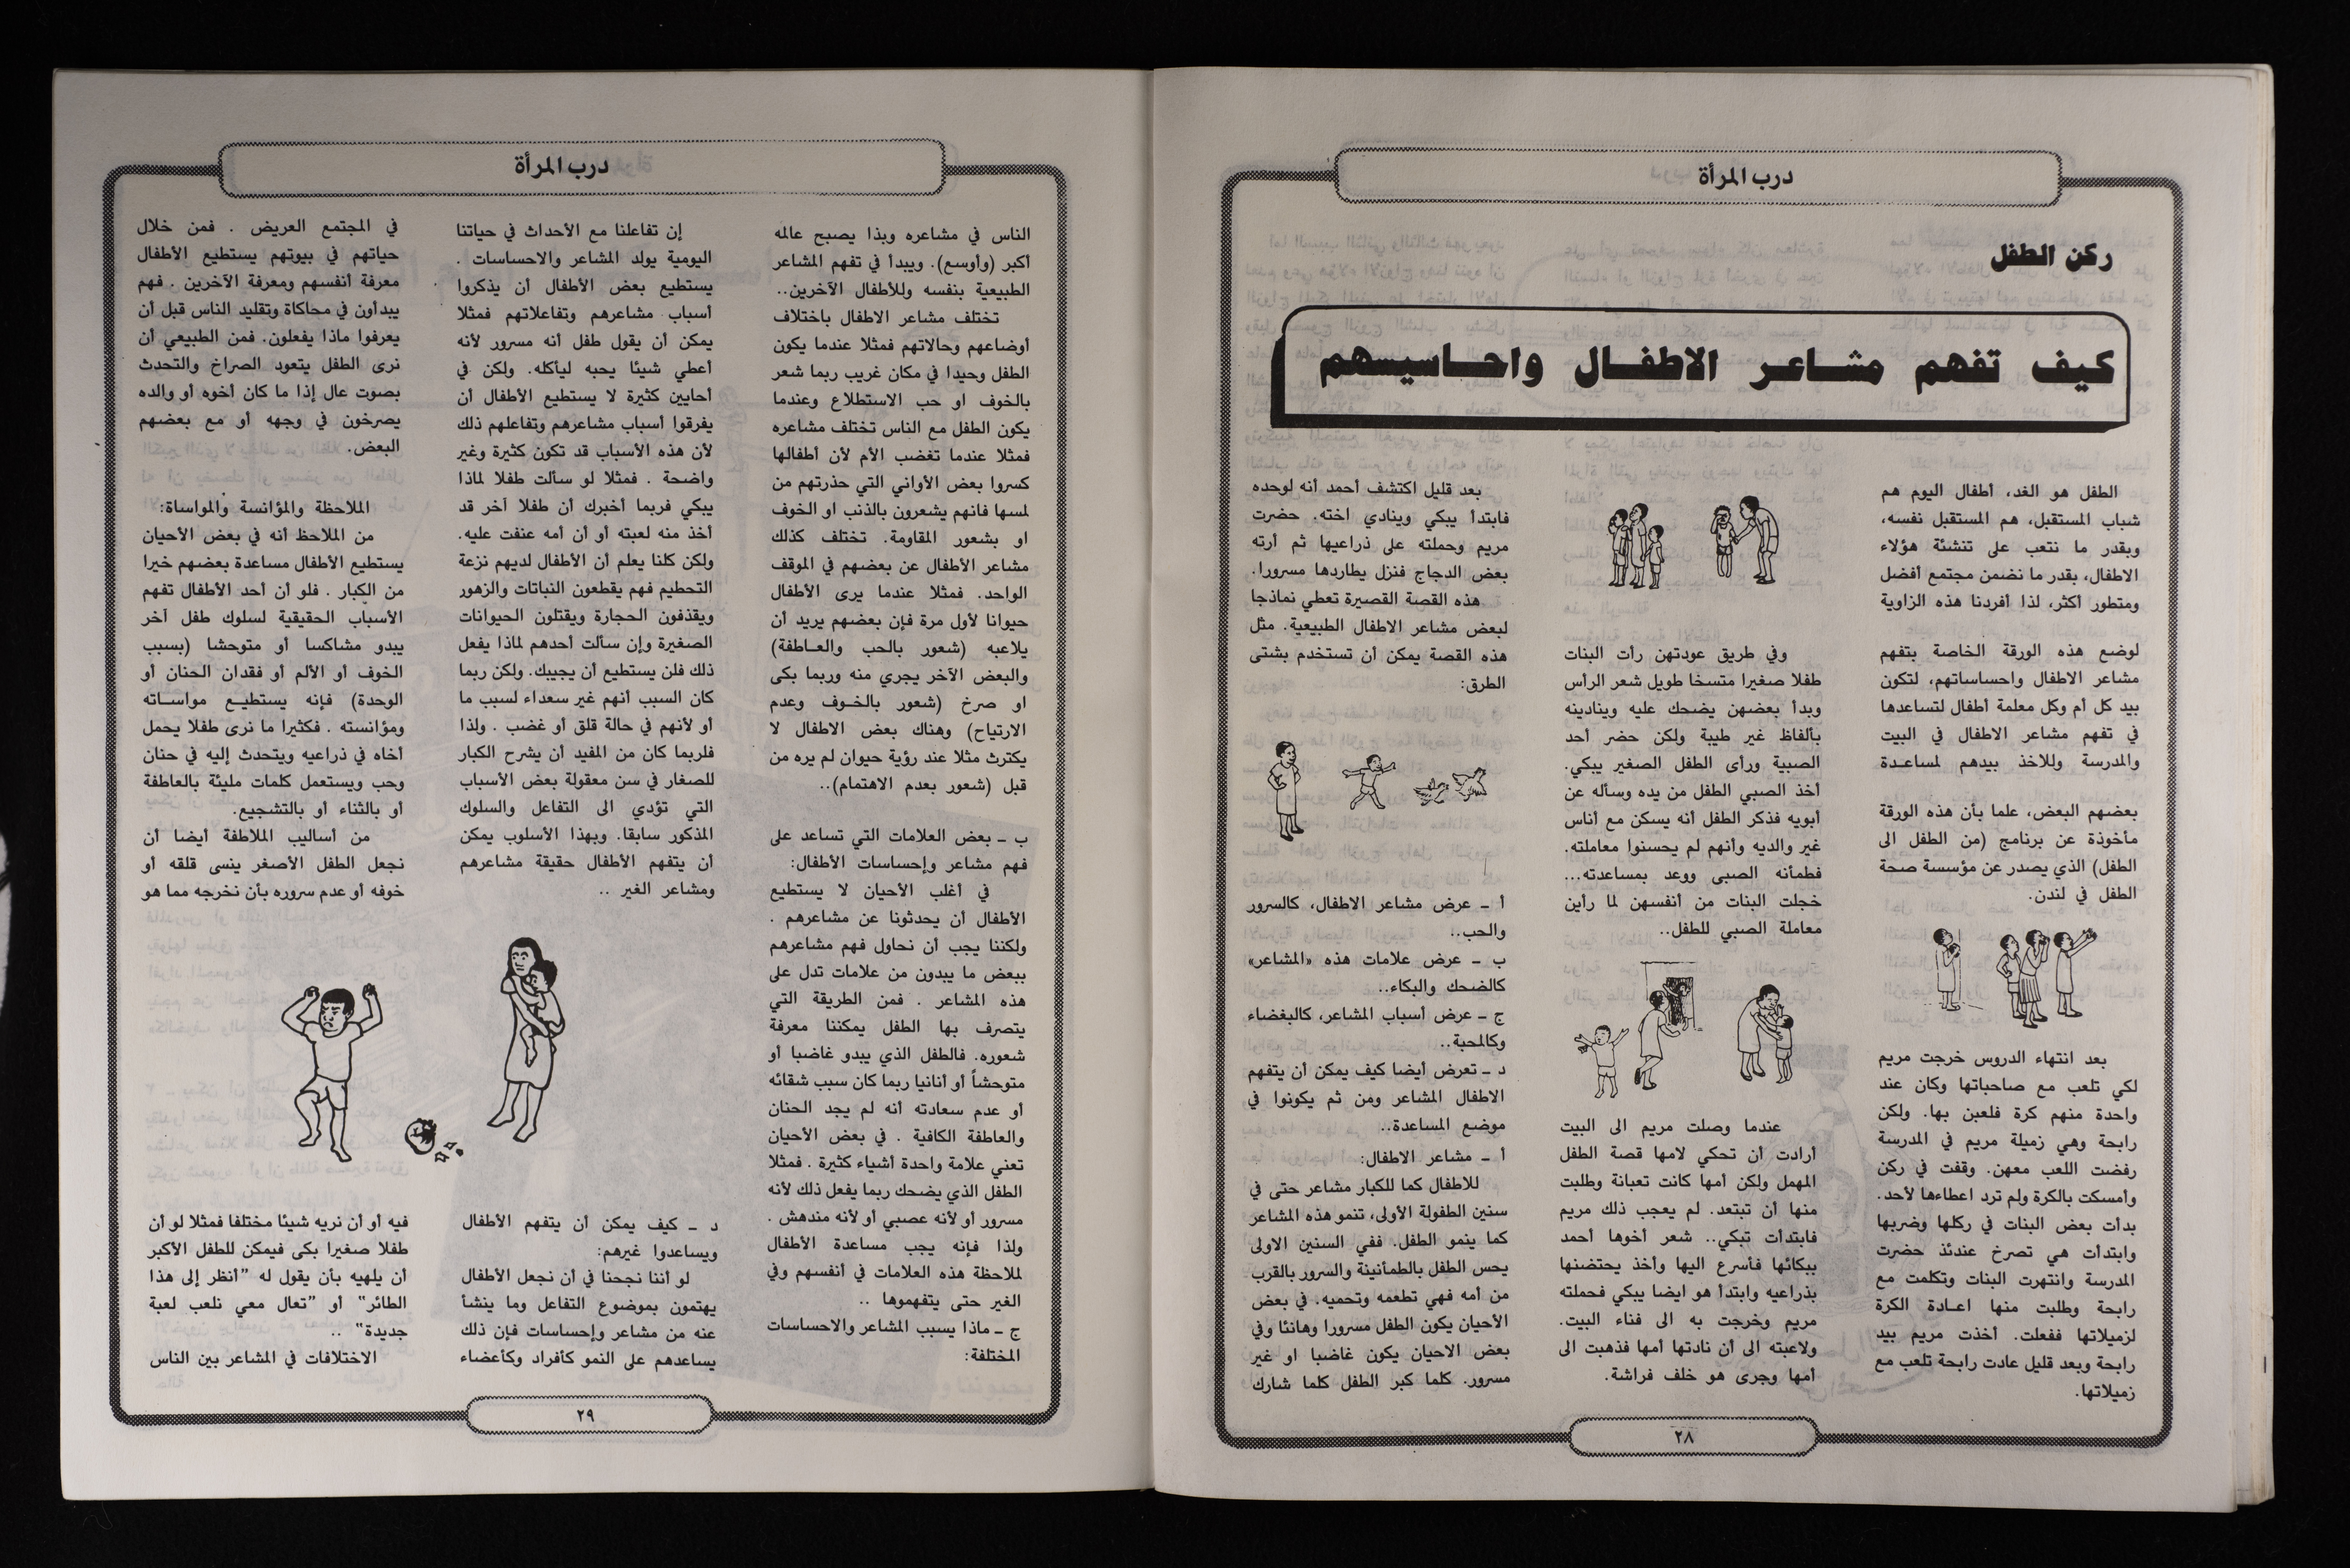 درب المرأة
ركن الطفل
كيف تفهم مشاعر الاطفال واحاسيسهم
الطفل هو الغد، أطفال اليوم هم
شباب المستقبل، هم المستقبل نفسه،
وبقدر ما نتعب على تنشئة هؤلاء
الاطفال، بقدر ما نضمن مجتمع أفضل
ومتطور أكثر، لذا أفردنا هذه الزاوية
لوضع هذه الورقة الخاصة بتفهم
مشاعر الاطفال واحساساتهم، لتكون
بيد كل أم وكل معلمة أطفال لتساعدها
في تفهم مشاعر الاطفال في البيت
والمدرسة وللاخذ بيدهم لمساعدة
بعضهم البعض، علما بأن هذه الورقة
مأخوذة عن برنامج (من الطفل الى
الطفل) الذي يصدر عن مؤسسة صحة
الطفل في لندن.
بعد انتهاء الدروس خرجت مريم
لكي تلعب مع صاحباتها وكان عند
واحدة منهم كرة فلعبن بها. ولكن
رابحة وهي زميلة مريم في المدرسة
رفضت اللعب معهن. وقفت في ركن
وأمسكت بالكرة ولم ترد اعطاءها لأحد.
بدأت بعض البنات في ركلها وضربها
وابتدأت هي تصرخ عندئذ حضرت
المدرسة وانتهرت البنات وتكلمت مع
رابحة وطلبت منها اعادة الكرة
لزميلاتها ففعلت. أخذت مريم بيد
رابحة وبعد قليل عادت رابحة تلعب مع
زميلاتها.
وفي طريق عودتهن رأت البنات
طفلا صغيرا متسخا طويل شعر الرأس
وبدأ بعضهن يضحك عليه وينادينه
بألفاظ غير طيبة ولكن حضر أحد
الصبية ورأى الطفل الصغير يبكي.
أخذ الصبي الطفل من يده وسأله عن
أبويه فذكر الطفل أنه يسكن مع أناس
غير والديه وأنهم لم يحسنوا معاملته.
فطمأنه الصبى ووعد بمساعدته...
خجلت البنات من أنفسهن لما رأين
معاملة الصبي للطفل..
عندما وصلت مريم الى البيت
أرادت أن تحكي لامها قصة الطفل
المهمل ولكن أمها كانت تعبانة وطلبت
منها أن تبتعد. لم يعجب ذلك مريم
فابتدأت تبكي.. شعر أخوها أحمد
ببكائها فأسرع اليها وأخذ يحتضنها
بذراعيه وابتدأ هو ايضا يبكي فحملته
مريم وخرجت به الى فناء البيت.
ولاعبته الى أن نادتها أمها فذهبت الى
أمها وجرى هو خلف فراشة.
بعد قليل اكتشف أحمد أنه لوحده
فابتدأ يبكي وينادي اخته. حضرت
مريم وحملته على ذراعيها ثم أرته
بعض الدجاج فنزل يطاردها مسرورا.
هذه القصة القصيرة تعطي نماذجا
لبعض مشاعر الاطفال الطبيعية. مثل
هذه القصة يمكن أن تستخدم بشتى
الطرق:
أ ــ عرض مشاعر الاطفال، كالسرور
والحب..
ب ــ عرض علامات هذه «المشاعر»
كالضحك والبكاء..
ج ــ عرض أسباب المشاعر، كالبغضاء
وكالمحبة..
د ــ تعرض أيضا كيف يمكن أن يتفهم
الاطفال المشاعر ومن ثم يكونوا في
موضع المساعدة..
أ ــ مشاعر الاطفال:
للاطفال كما للكبار مشاعر حتى في
سنين الطفولة الأولى، تنمو هذه المشاعر
كما ينمو الطفل. ففي السنين الاولى
يحس الطفل بالطمأنينة والسرور بالقرب
من أمه فهي تطعمه وتحميه. في بعض
الأحيان يكون الطفل مسرورا وهانئا وفي
بعض الاحيان يكون غاضبا او غير
مسرور. كلما كبر الطفل كلما شارك
٢٨
درب المرأة
الناس في مشاعره وبذا يصبح عالمه
أكبر (وأوسع). ويبدأ في تفهم المشاعر
الطبيعية بنفسه وللأطفال الآخرين..
تختلف مشاعر الاطفال باختلاف
أوضاعهم وحالاتهم فمثلا عندما يكون
الطفل وحيدا في مكان غريب ربما شعر
بالخوف او حب الاستطلاع وعندما
يكون الطفل مع الناس تختلف مشاعره
فمثلا عندما تغضب الأم لأن أطفالها
كسروا بعض الأواني التي حذرتهم من
لمسها فانهم يشعرون بالذنب او الخوف
او بشعور المقاومة. تختلف كذلك
مشاعر الأطفال عن بعضهم في الموقف
الواحد. فمثلا عندما يرى الأطفال
حيوانا لأول مرة فإن بعضهم يريد أن
يلاعبه (شعور بالحب والعاطفة)
والبعض الآخر يجري منه وربما بكى
او صرخ (شعور بالخوف وعدم
الارتياح) وهناك بعض الاطفال لا
يكترث مثلا عند رؤية حيوان لم يره من
قبل (شعور بعدم الاهتمام)..
ب ــ بعض العلامات التي تساعد على
فهم مشاعر وإحساسات الأطفال:
في أغلب الأحيان لا يستطيع
الأطفال أن يحدثونا عن مشاعرهم .
ولكننا يجب أن نحاول فهم مشاعرهم
ببعض ما يبدون من علامات تدل على
هذه المشاعر . فمن الطريقة التي
يتصرف بها الطفل يمكننا معرفة
شعوره. فالطفل الذي يبدو غاضبا أو
متوحشاً أو أنانيا ربما كان سبب شقائه
أو عدم سعادته أنه لم يجد الحنان
والعاطفة الكافية . في بعض الأحيان
تعني علامة واحدة أشياء كثيرة . فمثلا
الطفل الذي يضحك ربما يفعل ذلك لأنه
مسرور أو لأنه عصبي أو لأنه مندهش .
ولذا فإنه يجب مساعدة الأطفال
لملاحظة هذه العلامات في أنفسهم وفي
الغير حتى يتفهموها ..
ج ــ ماذا يسبب المشاعر والاحساسات
المختلفة:
إن تفاعلنا مع الأحداث في حياتنا
اليومية يولد المشاعر والاحساسات .
يستطيع بعض الأطفال أن يذكروا
أسباب مشاعرهم وتفاعلاتهم فمثلا
يمكن أن يقول طفل أنه مسرور لأنه
أعطي شيئا يحبه ليأكله. ولكن في
أحايين كثيرة لا يستطيع الأطفال أن
يفرقوا أسباب مشاعرهم وتفاعلهم ذلك
لأن هذه الأسباب قد تكون كثيرة وغير
واضحة . فمثلا لو سألت طفلا لماذا
يبكي فربما أخبرك أن طفلا آخر قد
أخذ منه لعبته أو أن أمه عنفت عليه.
ولكن كلنا يعلم أن الأطفال لديهم نزعة
التحطيم فهم يقطعون النباتات والزهور
ويقذفون الحجارة ويقتلون الحيوانات
الصغيرة وإن سألت أحدهم لماذا يفعل
ذلك فلن يستطيع أن يجيبك. ولكن ربما
كان السبب أنهم غير سعداء لسبب ما
أو لأنهم في حالة قلق أو غضب . ولذا
فلربما كان من المفيد أن يشرح الكبار
للصغار في سن معقولة بعض الأسباب
التي تؤدي الى التفاعل والسلوك
المذكور سابقا. وبهذا الأسلوب يمكن
أن يتفهم الأطفال حقيقة مشاعرهم
ومشاعر الغير ..
د ــ كيف يمكن أن يتفهم الأطفال
ويساعدوا غيرهم:
لو أننا نجحنا في أن نجعل الأطفال
يهتمون بموضوع التفاعل وما ينشأ
عنه من مشاعر وإحساسات فإن ذلك
يساعدهم على النمو كأفراد وكأعضاء
في المجتمع العريض . فمن خلال
حياتهم في بيوتهم يستطيع الأطفال
معرفة أنفسهم ومعرفة الآخرين . فهم
يبدأون في محاكاة وتقليد الناس قبل أن
يعرفوا ماذا يفعلون. فمن الطبيعي أن
نرى الطفل يتعود الصراخ والتحدث
بصوت عال إذا ما كان أخوه أو والده
يصرخون في وجهه أو مع بعضهم
البعض.
الملاحظة والمؤانسة والمواساة:
من الملاحظ أنه في بعض الأحيان
يستطيع الأطفال مساعدة بعضهم خيرا
من الكبار . فلو أن أحد الأطفال تفهم
الأسباب الحقيقية لسلوك طفل آخر
يبدو مشاكسا أو متوحشا (بسبب
الخوف أو الألم أو فقدان الحنان أو
الوحدة) فإنه يستطيع مواساته
ومؤانسته . فكثيرا ما نرى طفلا يحمل
أخاه في ذراعيه ويتحدث إليه في حنان
وحب ويستعمل كلمات مليئة بالعاطفة
أو بالثناء أو بالتشجيع.
من أساليب الملاطفة أيضا أن
نجعل الطفل الأصغر ينسى قلقه أو
خوفه أو عدم سروره بأن نخرجه مما هو
فيه أو أن نريه شيئا مختلفا فمثلا لو أن
طفلا صغيرا بكى فيمكن للطفل الأكبر
أن يلهيه بأن يقول له "أنظر إلى هذا
الطائر" أو "تعال معي نلعب لعبة
جديدة" ..
الاختلافات في المشاعر بين الناس
٢٩